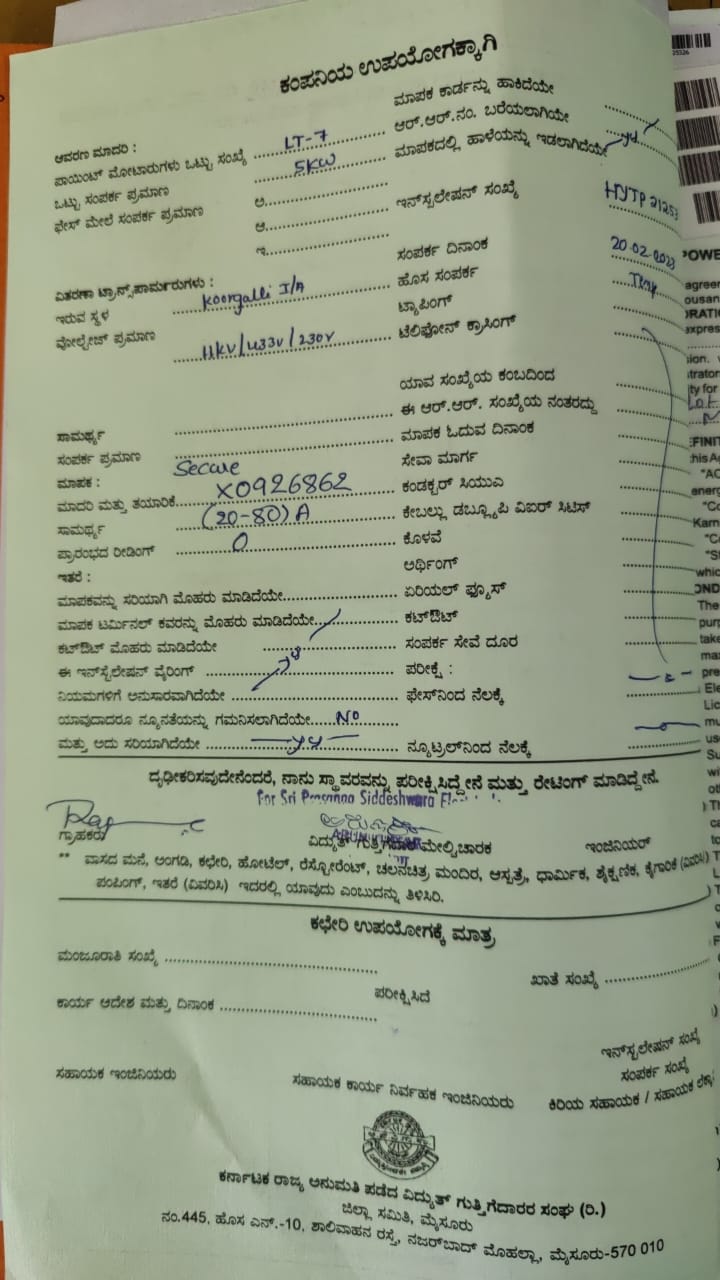 ಕಂಪನಿಯ ಉಪಯೋಗಕ್ಕಾಗಿ
ಮಾಪಕ ಕಾರ್ಡನ್ನು ಹಾಕಿದೆಯೇ
ಆವರಣ ಮಾದರಿ : LT-7 ಆರ್.ಆರ್.ನಂ. ಬರೆಯಲಾಗಿಯೇ
ಪಾಯಿಂಟ್ ಮೋಟಾರುಗಳು ಒಟ್ಟು ಸಂಖ್ಯೆ 5KW ಮಾಪಕದಲ್ಲಿ ಹಾಳೆಯನ್ನು ಇಡಲಾಗಿದೆಯೇ
ಒಟ್ಟು ಸಂಪರ್ಕ ಪ್ರಮಾಣ
ಫೇಸ್ ಮೇಲೆ ಸಂಪರ್ಕ ಪ್ರಮಾಣ ಅ. ಇನ್‌ಸ್ಟಲೇಷನ್ ಸಂಖ್ಯೆ HJTP 21253
ಆ.
ಇ. ಸಂಪರ್ಕ ದಿನಾಂಕ 20-02-2023
ವಿತರಣಾ ಟ್ರಾನ್ಸ್‌ಪಾರ್ಮರುಗಳು : ಹೊಸ ಸಂಪರ್ಕ
ಇರುವ ಸ್ಥಳ Koorgalli I/A ಟ್ಯಾಪಿಂಗ್
ವೋಲ್ಟೇಜ್ ಪ್ರಮಾಣ 11KV/433V/230V ಟೆಲಿಫೋನ್ ಕ್ರಾಸಿಂಗ್
ಯಾವ ಸಂಖ್ಯೆಯ ಕಂಬದಿಂದ
ಸಾಮರ್ಥ್ಯ ಈ ಆರ್.ಆರ್. ಸಂಖ್ಯೆಯ ನಂತರದ್ದು
ಸಂಪರ್ಕ ಪ್ರಮಾಣ ಮಾಪಕ ಓದುವ ದಿನಾಂಕ
ಮಾಪಕ : Secure ಸೇವಾ ಮಾರ್ಗ
ಮಾದರಿ ಮತ್ತು ತಯಾರಿಕೆ X0926862 ಕಂಡಕ್ಟರ್ ಸಿಯುಎ
ಸಾಮರ್ಥ್ಯ (20-80)A ಕೇಬಲ್ಲು ಡಬ್ಲ್ಯೂಪಿ ವಿಐರ್ ಸಿಟಿಸ್
ಪ್ರಾರಂಭದ ರೀಡಿಂಗ್ 0 ಕೊಳವೆ
ಇತರೆ : ಅರ್ಥಿಂಗ್
ಮಾಪಕವನ್ನು ಸರಿಯಾಗಿ ಮೊಹರು ಮಾಡಿದೆಯೇ ಏರಿಯಲ್ ಫ್ಯೂಸ್
ಮಾಪಕ ಟರ್ಮಿನಲ್ ಕವರನ್ನು ಮೊಹರು ಮಾಡಿದೆಯೇ ಕಟ್‌ಔಟ್
ಕಟ್‌ಔಟ್ ಮೊಹರು ಮಾಡಿದೆಯೇ ಸಂಪರ್ಕ ಸೇವೆ ದೂರ
ಈ ಇನ್‌ಸ್ಟಲೇಷನ್ ವೈರಿಂಗ್ ಪರೀಕ್ಷೆ :
ನಿಯಮಗಳಿಗೆ ಅನುಸಾರವಾಗಿದೆಯೇ ಫೇಸ್‌ನಿಂದ ನೆಲಕ್ಕೆ
ಯಾವುದಾದರೂ ನ್ಯೂನತೆಯನ್ನು ಗಮನಿಸಲಾಗಿದೆಯೇ NO
ಮತ್ತು ಅದು ಸರಿಯಾಗಿದೆಯೇ ನ್ಯೂಟ್ರಲ್‌ನಿಂದ ನೆಲಕ್ಕೆ
ದೃಢೀಕರಿಸುವುದೇನೆಂದರೆ, ನಾನು ಸ್ಥಾವರವನ್ನು ಪರೀಕ್ಷಿಸಿದ್ದೇನೆ ಮತ್ತು ರೇಟಿಂಗ್ ಮಾಡಿದ್ದೇನೆ.
For Sri Prasanna Siddeshwara
ಗ್ರಾಹಕರು ವಿದ್ಯುತ್ ಗುತ್ತಿಗೆದಾರ ಮೇಲ್ವಿಚಾರಕ ಇಂಜಿನಿಯರ್
** ವಾಸದ ಮನೆ, ಅಂಗಡಿ, ಕಛೇರಿ, ಹೋಟೆಲ್, ರೆಸ್ಟೋರೆಂಟ್, ಚಲನಚಿತ್ರ ಮಂದಿರ, ಆಸ್ಪತ್ರೆ, ಧಾರ್ಮಿಕ, ಶೈಕ್ಷಣಿಕ, ಕೈಗಾರಿಕೆ (ವಿವರಿಸಿ)
ಪಂಪಿಂಗ್, ಇತರೆ (ವಿವರಿಸಿ) ಇದರಲ್ಲಿ ಯಾವುದು ಎಂಬುದನ್ನು ತಿಳಿಸಿರಿ.
ಕಛೇರಿ ಉಪಯೋಗಕ್ಕೆ ಮಾತ್ರ
ಮಂಜೂರಾತಿ ಸಂಖ್ಯೆ ಖಾತೆ ಸಂಖ್ಯೆ
ಕಾರ್ಯ ಆದೇಶ ಮತ್ತು ದಿನಾಂಕ ಪರೀಕ್ಷಿಸಿದೆ
ಇನ್‌ಸ್ಟಲೇಷನ್ ಸಂಖ್ಯೆ
ಸಂಪರ್ಕ ಸಂಖ್ಯೆ
ಸಹಾಯಕ ಇಂಜಿನಿಯರು ಸಹಾಯಕ ಕಾರ್ಯ ನಿರ್ವಹಕ ಇಂಜಿನಿಯರು ಕಿರಿಯ ಸಹಾಯಕ / ಸಹಾಯಕ
ಕರ್ನಾಟಕ ರಾಜ್ಯ ಅನುಮತಿ ಪಡೆದ ವಿದ್ಯುತ್ ಗುತ್ತಿಗೆದಾರರ ಸಂಘ (ರಿ.)
ಜಿಲ್ಲಾ ಸಮಿತಿ, ಮೈಸೂರು
ನಂ.445, ಹೊಸ ಎನ್.-10, ಶಾಲಿವಾಹನ ರಸ್ತೆ, ನಜರ್‌ಬಾದ್ ಮೊಹಲ್ಲಾ, ಮೈಸೂರು-570 010